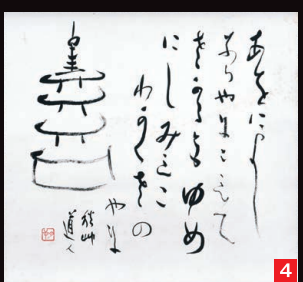 あをによし
ならやまこえて
さかるともゆめ
にしみえこ
わかくさの
やま
秋艸
道人
4